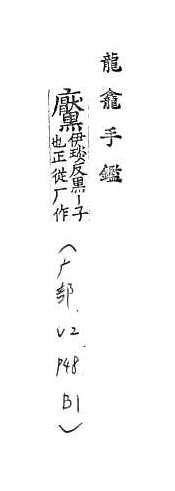 龍龕手鑑
黶伊琰反黑丨子
也正從厂作
(广部.V2.P48 B1)